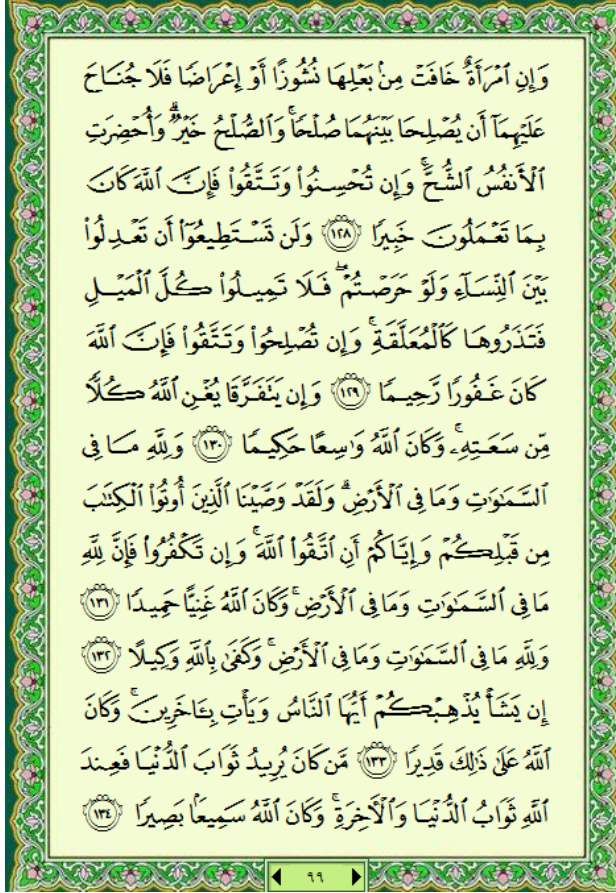 وَإِنِ ٱمْرَأَةٌ خَافَتْ مِنۢ بَعْلِهَا نُشُوزًا أَوْ إِعْرَاضًا فَلَا جُنَاحَ
عَلَيْهِمَآ أَن يُصْلِحَا بَيْنَهُمَا صُلْحًا ۚ وَٱلصُّلْحُ خَيْرٌ ۗ وَأُحْضِرَتِ
ٱلْأَنفُسُ ٱلشُّحَّ ۚ وَإِن تُحْسِنُوا۟ وَتَتَّقُوا۟ فَإِنَّ ٱللَّهَ كَانَ
بِمَا تَعْمَلُونَ خَبِيرًا ١٢٨ وَلَن تَسْتَطِيعُوٓا۟ أَن تَعْدِلُوا۟
بَيْنَ ٱلنِّسَآءِ وَلَوْ حَرَصْتُمْ ۖ فَلَا تَمِيلُوا۟ كُلَّ ٱلْمَيْلِ
فَتَذَرُوهَا كَٱلْمُعَلَّقَةِ ۚ وَإِن تُصْلِحُوا۟ وَتَتَّقُوا۟ فَإِنَّ ٱللَّهَ
كَانَ غَفُورًا رَّحِيمًا ١٢٩ وَإِن يَتَفَرَّقَا يُغْنِ ٱللَّهُ كُلًّا
مِّن سَعَتِهِۦ ۚ وَكَانَ ٱللَّهُ وَٰسِعًا حَكِيمًا ١٣٠ وَلِلَّهِ مَا فِى
ٱلسَّمَٰوَٰتِ وَمَا فِى ٱلْأَرْضِ ۗ وَلَقَدْ وَصَّيْنَا ٱلَّذِينَ أُوتُوا۟ ٱلْكِتَٰبَ
مِن قَبْلِكُمْ وَإِيَّاكُمْ أَنِ ٱتَّقُوا۟ ٱللَّهَ ۚ وَإِن تَكْفُرُوا۟ فَإِنَّ لِلَّهِ
مَا فِى ٱلسَّمَٰوَٰتِ وَمَا فِى ٱلْأَرْضِ ۚ وَكَانَ ٱللَّهُ غَنِيًّا حَمِيدًا ١٣١
وَلِلَّهِ مَا فِى ٱلسَّمَٰوَٰتِ وَمَا فِى ٱلْأَرْضِ ۚ وَكَفَىٰ بِٱللَّهِ وَكِيلًا ١٣٢
إِن يَشَأْ يُذْهِبْكُمْ أَيُّهَا ٱلنَّاسُ وَيَأْتِ بِـَٔاخَرِينَ ۚ وَكَانَ
ٱللَّهُ عَلَىٰ ذَٰلِكَ قَدِيرًا ١٣٣ مَّن كَانَ يُرِيدُ ثَوَابَ ٱلدُّنْيَا فَعِندَ
ٱللَّهِ ثَوَابُ ٱلدُّنْيَا وَٱلْأَخِرَةِ ۚ وَكَانَ ٱللَّهُ سَمِيعًۢا بَصِيرًا ١٣٤
٩٩